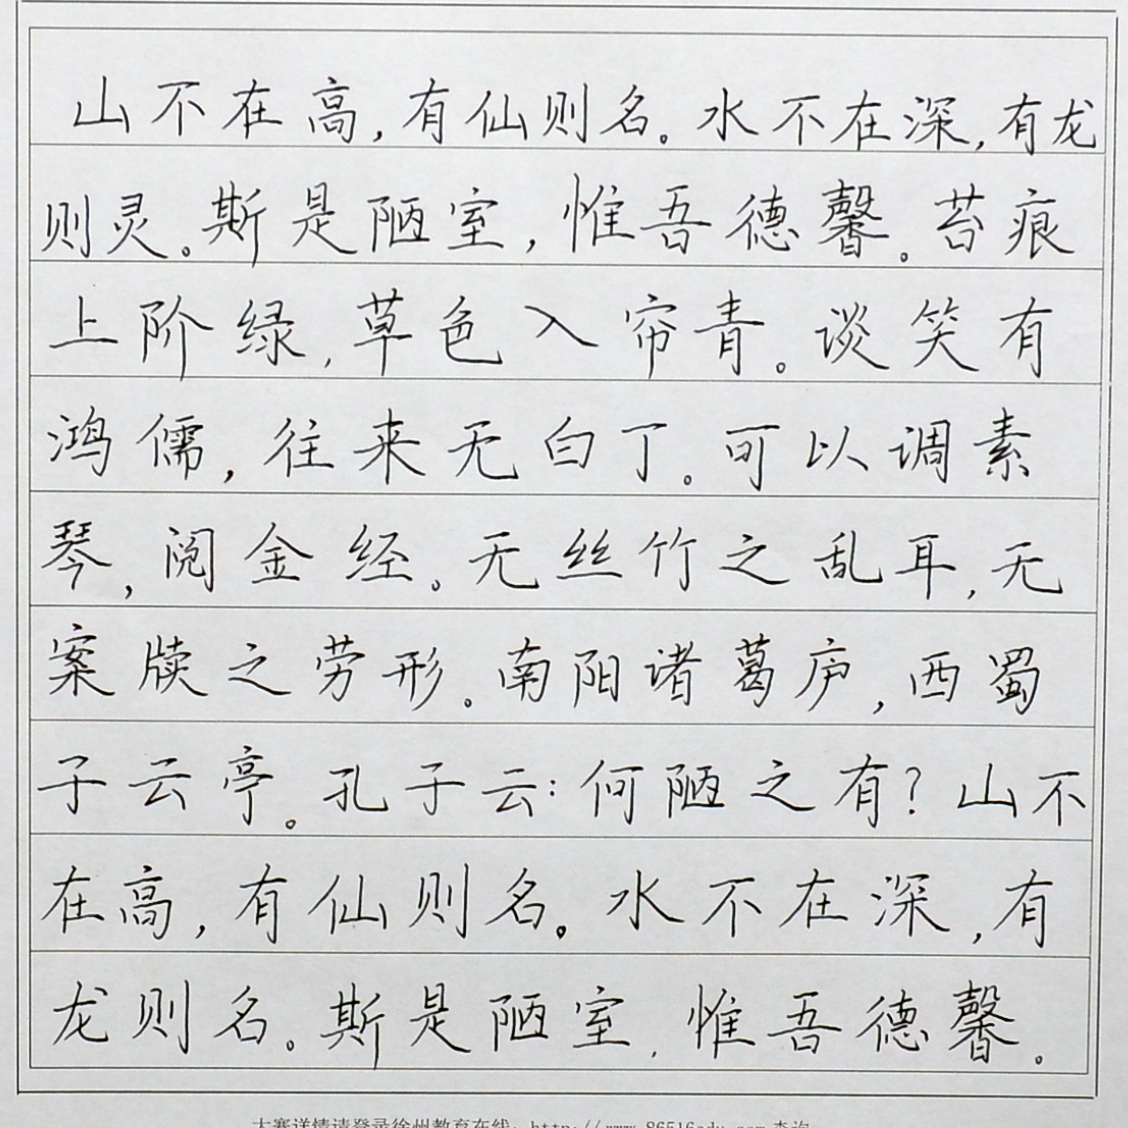 山不在高,有仙则名。水不在深,有龙
则灵。斯是陋室,惟吾德馨。苔痕
上阶绿,草色入帘青。谈笑有
鸿儒,往来无白丁。可以调素
琴,阅金经。无丝竹之乱耳,无
案牍之劳形。南阳诸葛庐,西蜀
子云亭。孔子云:何陋之有?山不
在高,有仙则名。水不在深,有
龙则名。斯是陋室,惟吾德馨。
大赛详情请登录徐州教育在线:http://www.86516edu.com查询